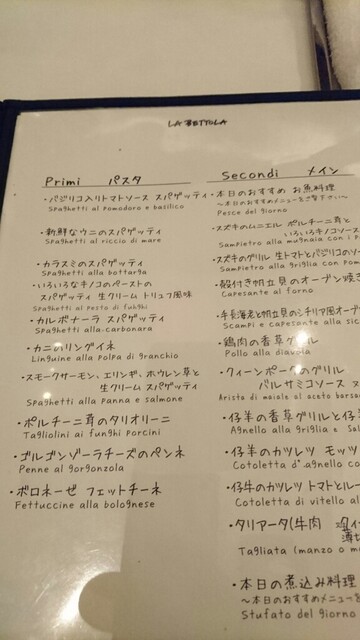 LA BETTOLA
Primi パスタ
・バジリコ入りトマトソース スパゲッティ
Spaghetti al pomodoro e basilico
・新鮮なウニのスパゲッティ
Spaghetti al riccio di mare
・カラスミのスパゲッティ
Spaghetti alla bottarga
・いろいろなキノコのペーストの
スパゲッティ 生クリーム トリュフ風味
Spaghetti al pesto di funghi
・カルボナーラ スパゲッティ
Spaghetti alla-carbonara
・カニのリングイネ
Linguine alla polpa di granchio
・スモークサーモン、エリンギ、ホウレン草と
生クリーム スパゲッティ
Spaghetti alla panna e salmone
・ポルチーニ茸のタリオリーニ
Tagliolini ai funghi porcini
・ゴルゴンゾーラチーズのペンネ
Penne al gorgonzola
・ボロネーゼ フェットチーネ
Fettuccine alla bolognese
Secondi メイン
・本日のおすすめ お魚料理
～本日のおすすめメニューをご覧下さい～
Pesce del giorno
・スズキのムニエル ポルチーニ茸と
いろいろキノコソース
Sampietro alla mugnaia con i
・スズキのグリル 生トマトとバジリコのソ
Sampietro alla griglia con pom
・殻付き帆立貝のオーブン焼き
Capesante al forno
・手長海老と帆立貝のシチリア風オーブ
Scampi e capesante alla sic
・鶏肉の香草グリル
Pollo alla diavola
・クィーンポークのグリル
バルサミコソース
Arista di maiale al aceto barsa
・仔羊の香草グリルと仔
Agnello alla griglia e Sal
・仔羊のカツレツ モッツ
Cotoletta d'agnello co
・仔牛のカツレツ トマトとルー
Cotoletta di vitello al
・タリアータ(牛肉
薄切
Tagliata (manzo o m
・本日の煮込み料理
～本日のおすすめメニューを
Stufato del giorno